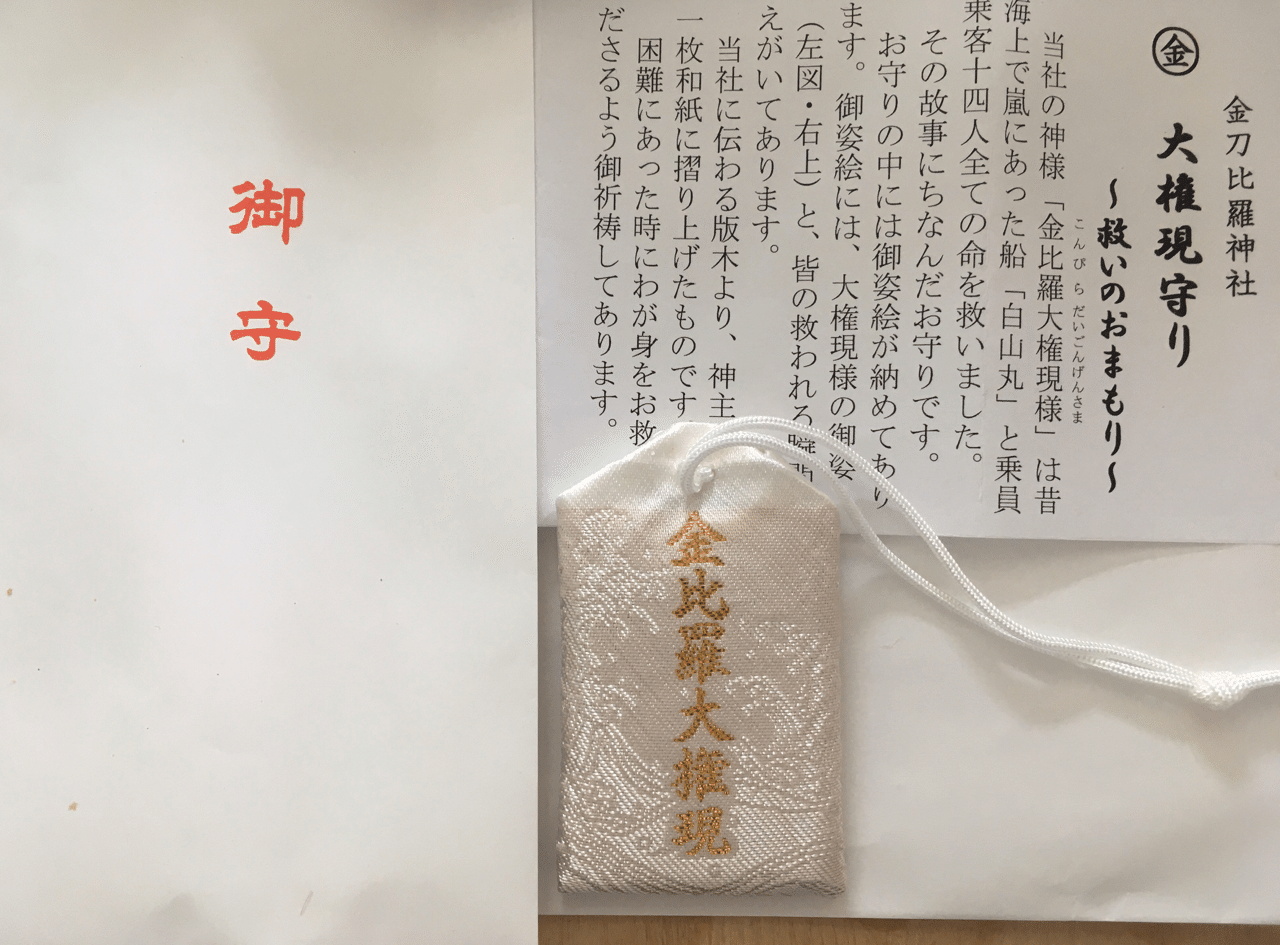 金刀比羅神社
㊎ 大権現守り
～救いのおまもり～
当社の神様「金比羅大権現様」は昔
こんぴらだいごんげんさま
海上で嵐にあった船「白山丸」と乗員
乗客十四人全ての命を救いました。
その故事にちなんだお守りです。
お守りの中には御姿絵が納めてあり
ます。御姿絵には、大権現様の御姿
(左図・右上)と、皆の救われる瞬間
えがいてあります。
当社に伝わる版木より、神主
一枚和紙に摺り上げたものです
困難にあった時にわが身をお救
ださるよう御祈祷してあります。
御守
金比羅大権現